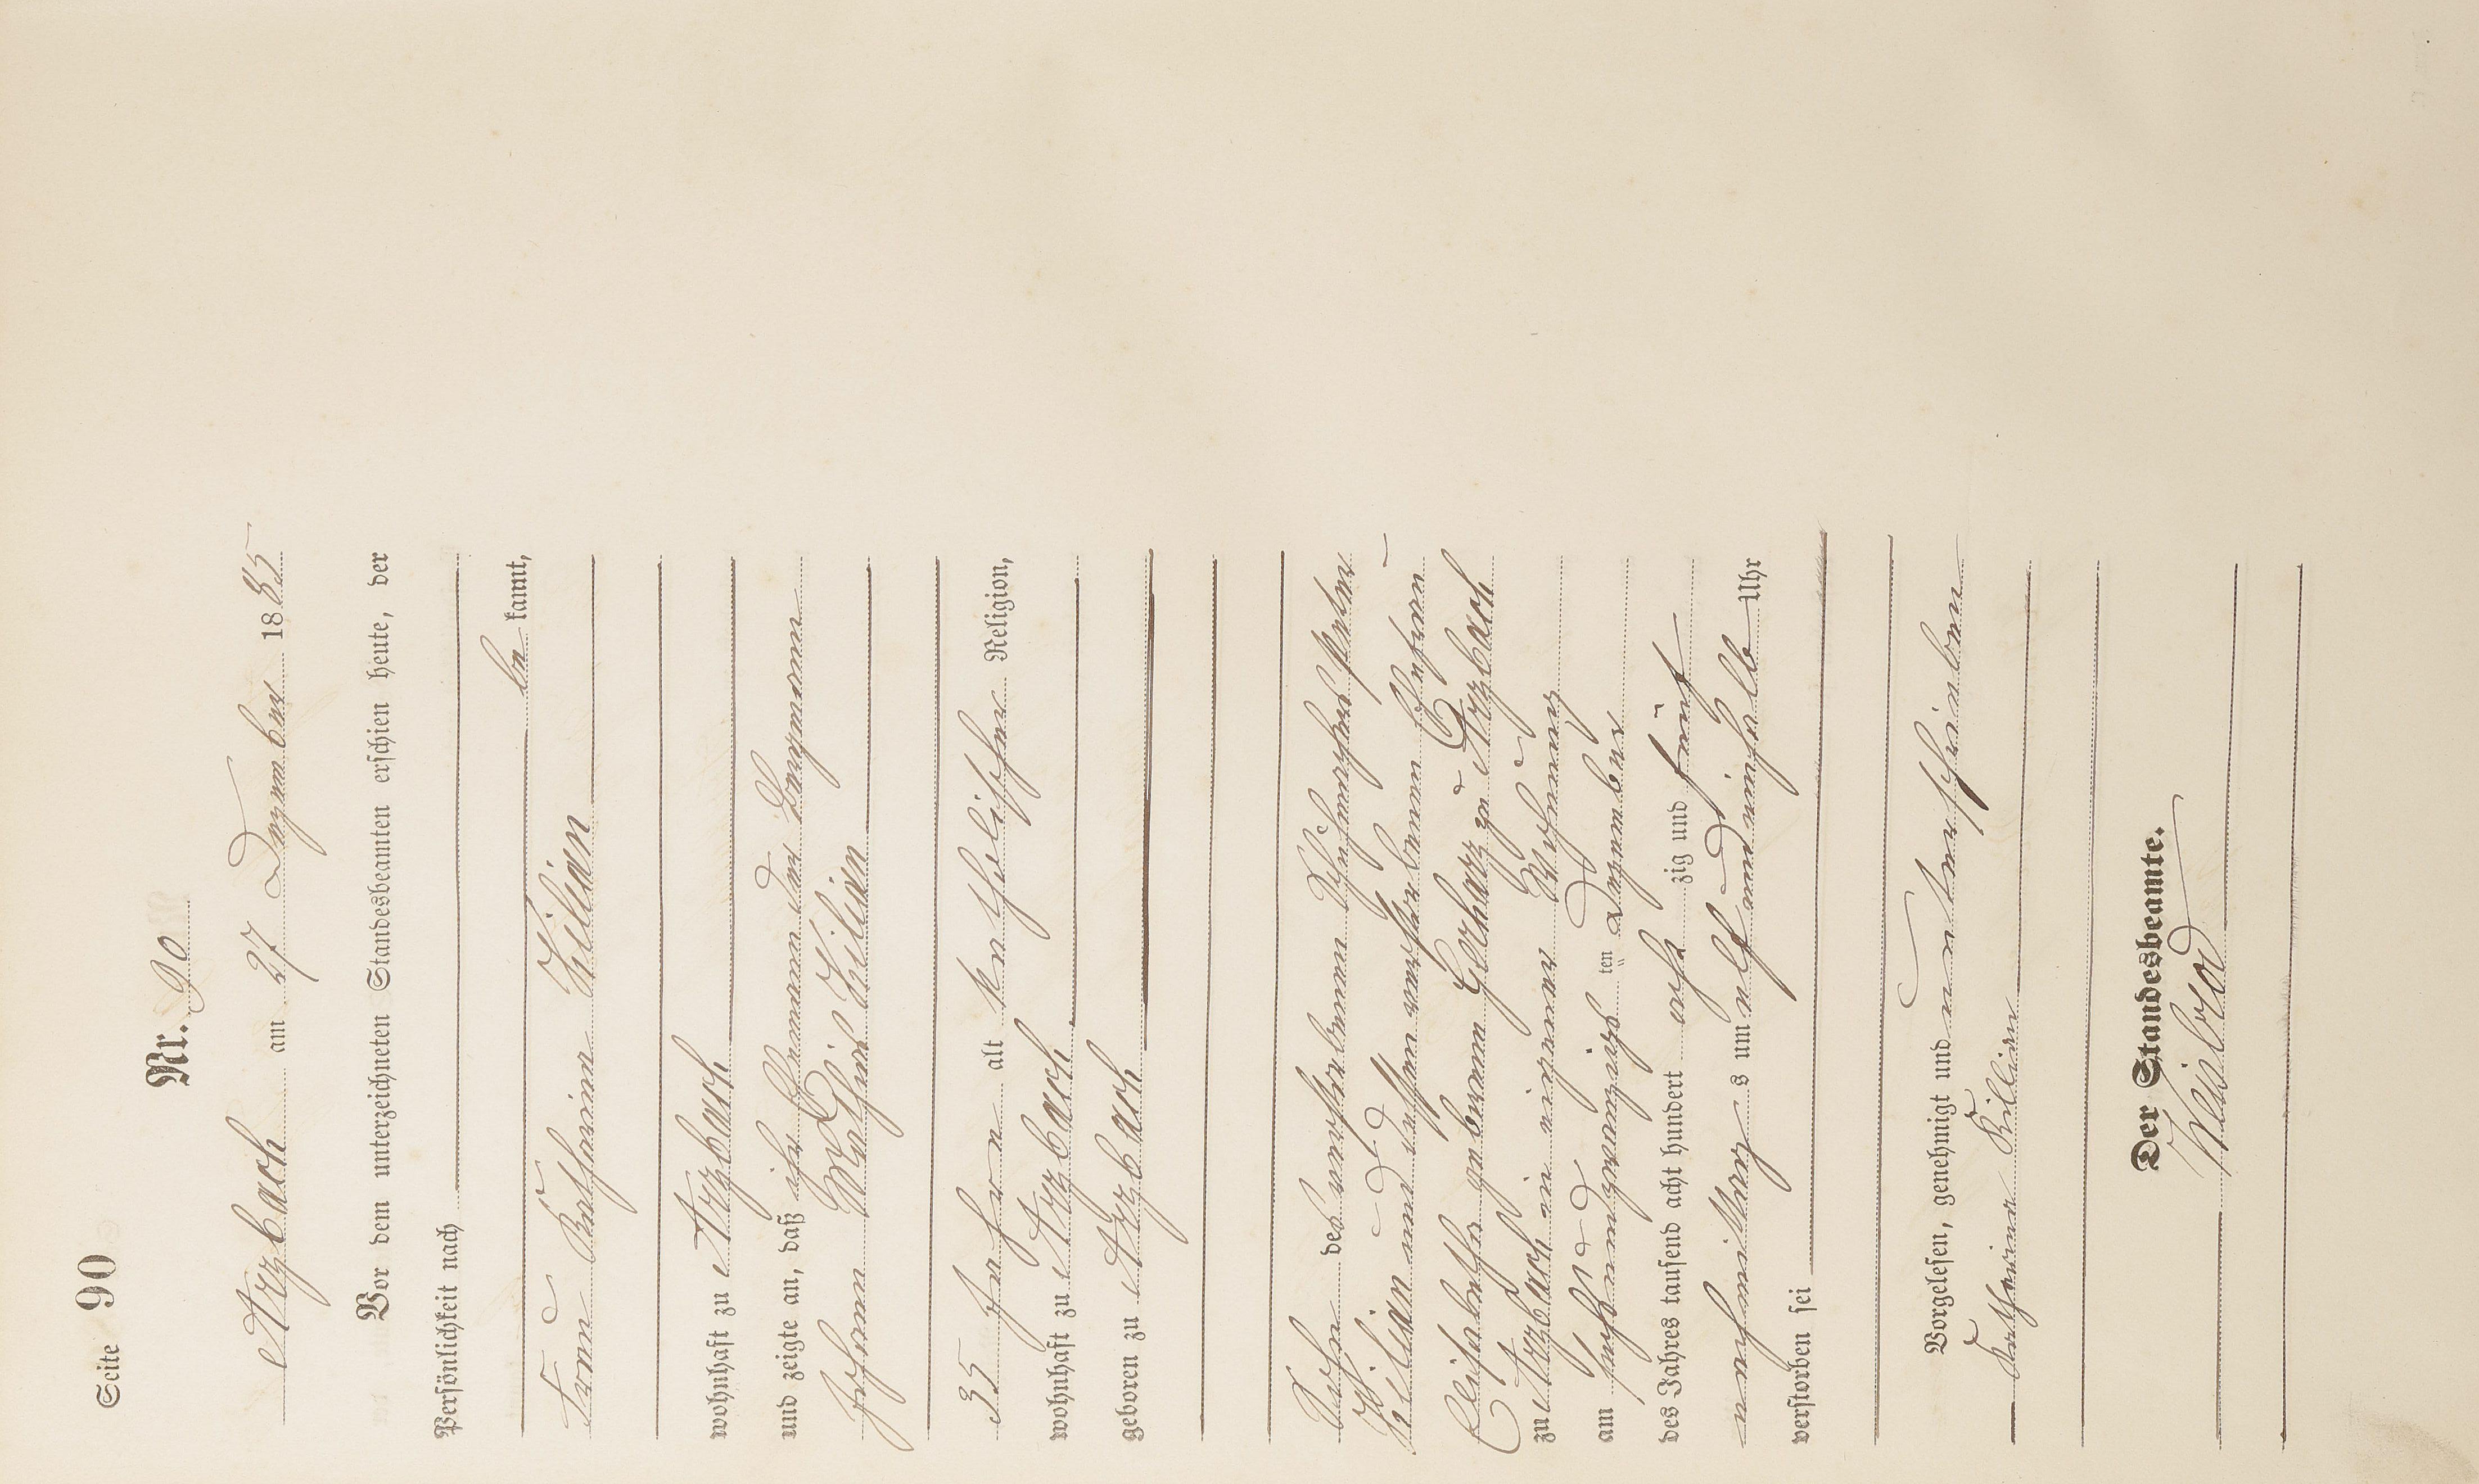 Seite 90
Nr. 90
Arzbach am 27 Dezember 1885
Vor dem unterzeichneten Standesbeamten erschien heute, der
Persönlichkeit nach
be kannt,
Frau Katharina Kilian
wohnhaft zu Arzbach
und zeigte an, daß ihr Ehemann der Bergmann
Johann Mathias Kilian
35 Jahre alt katholischer Religion,
wohnhaft zu Arzbach
geboren zu Arzbach
Sohn des verstorbenen Peter
Kilian und dessen verstorbenen Ehefrau
Elisabetha geborenen Gerharz zu Arzbach
zu Arzbach in seiner Wohnung
am sechsundzwanzigs ten Dezember
des Jahres tausend acht hundert acht zig und fünf
nachmittags um elf und ein halb Uhr
verstorben sei
Vorgelesen, genehmigt und unterschrieben
Katharina Kilian
Der Standesbeamte.